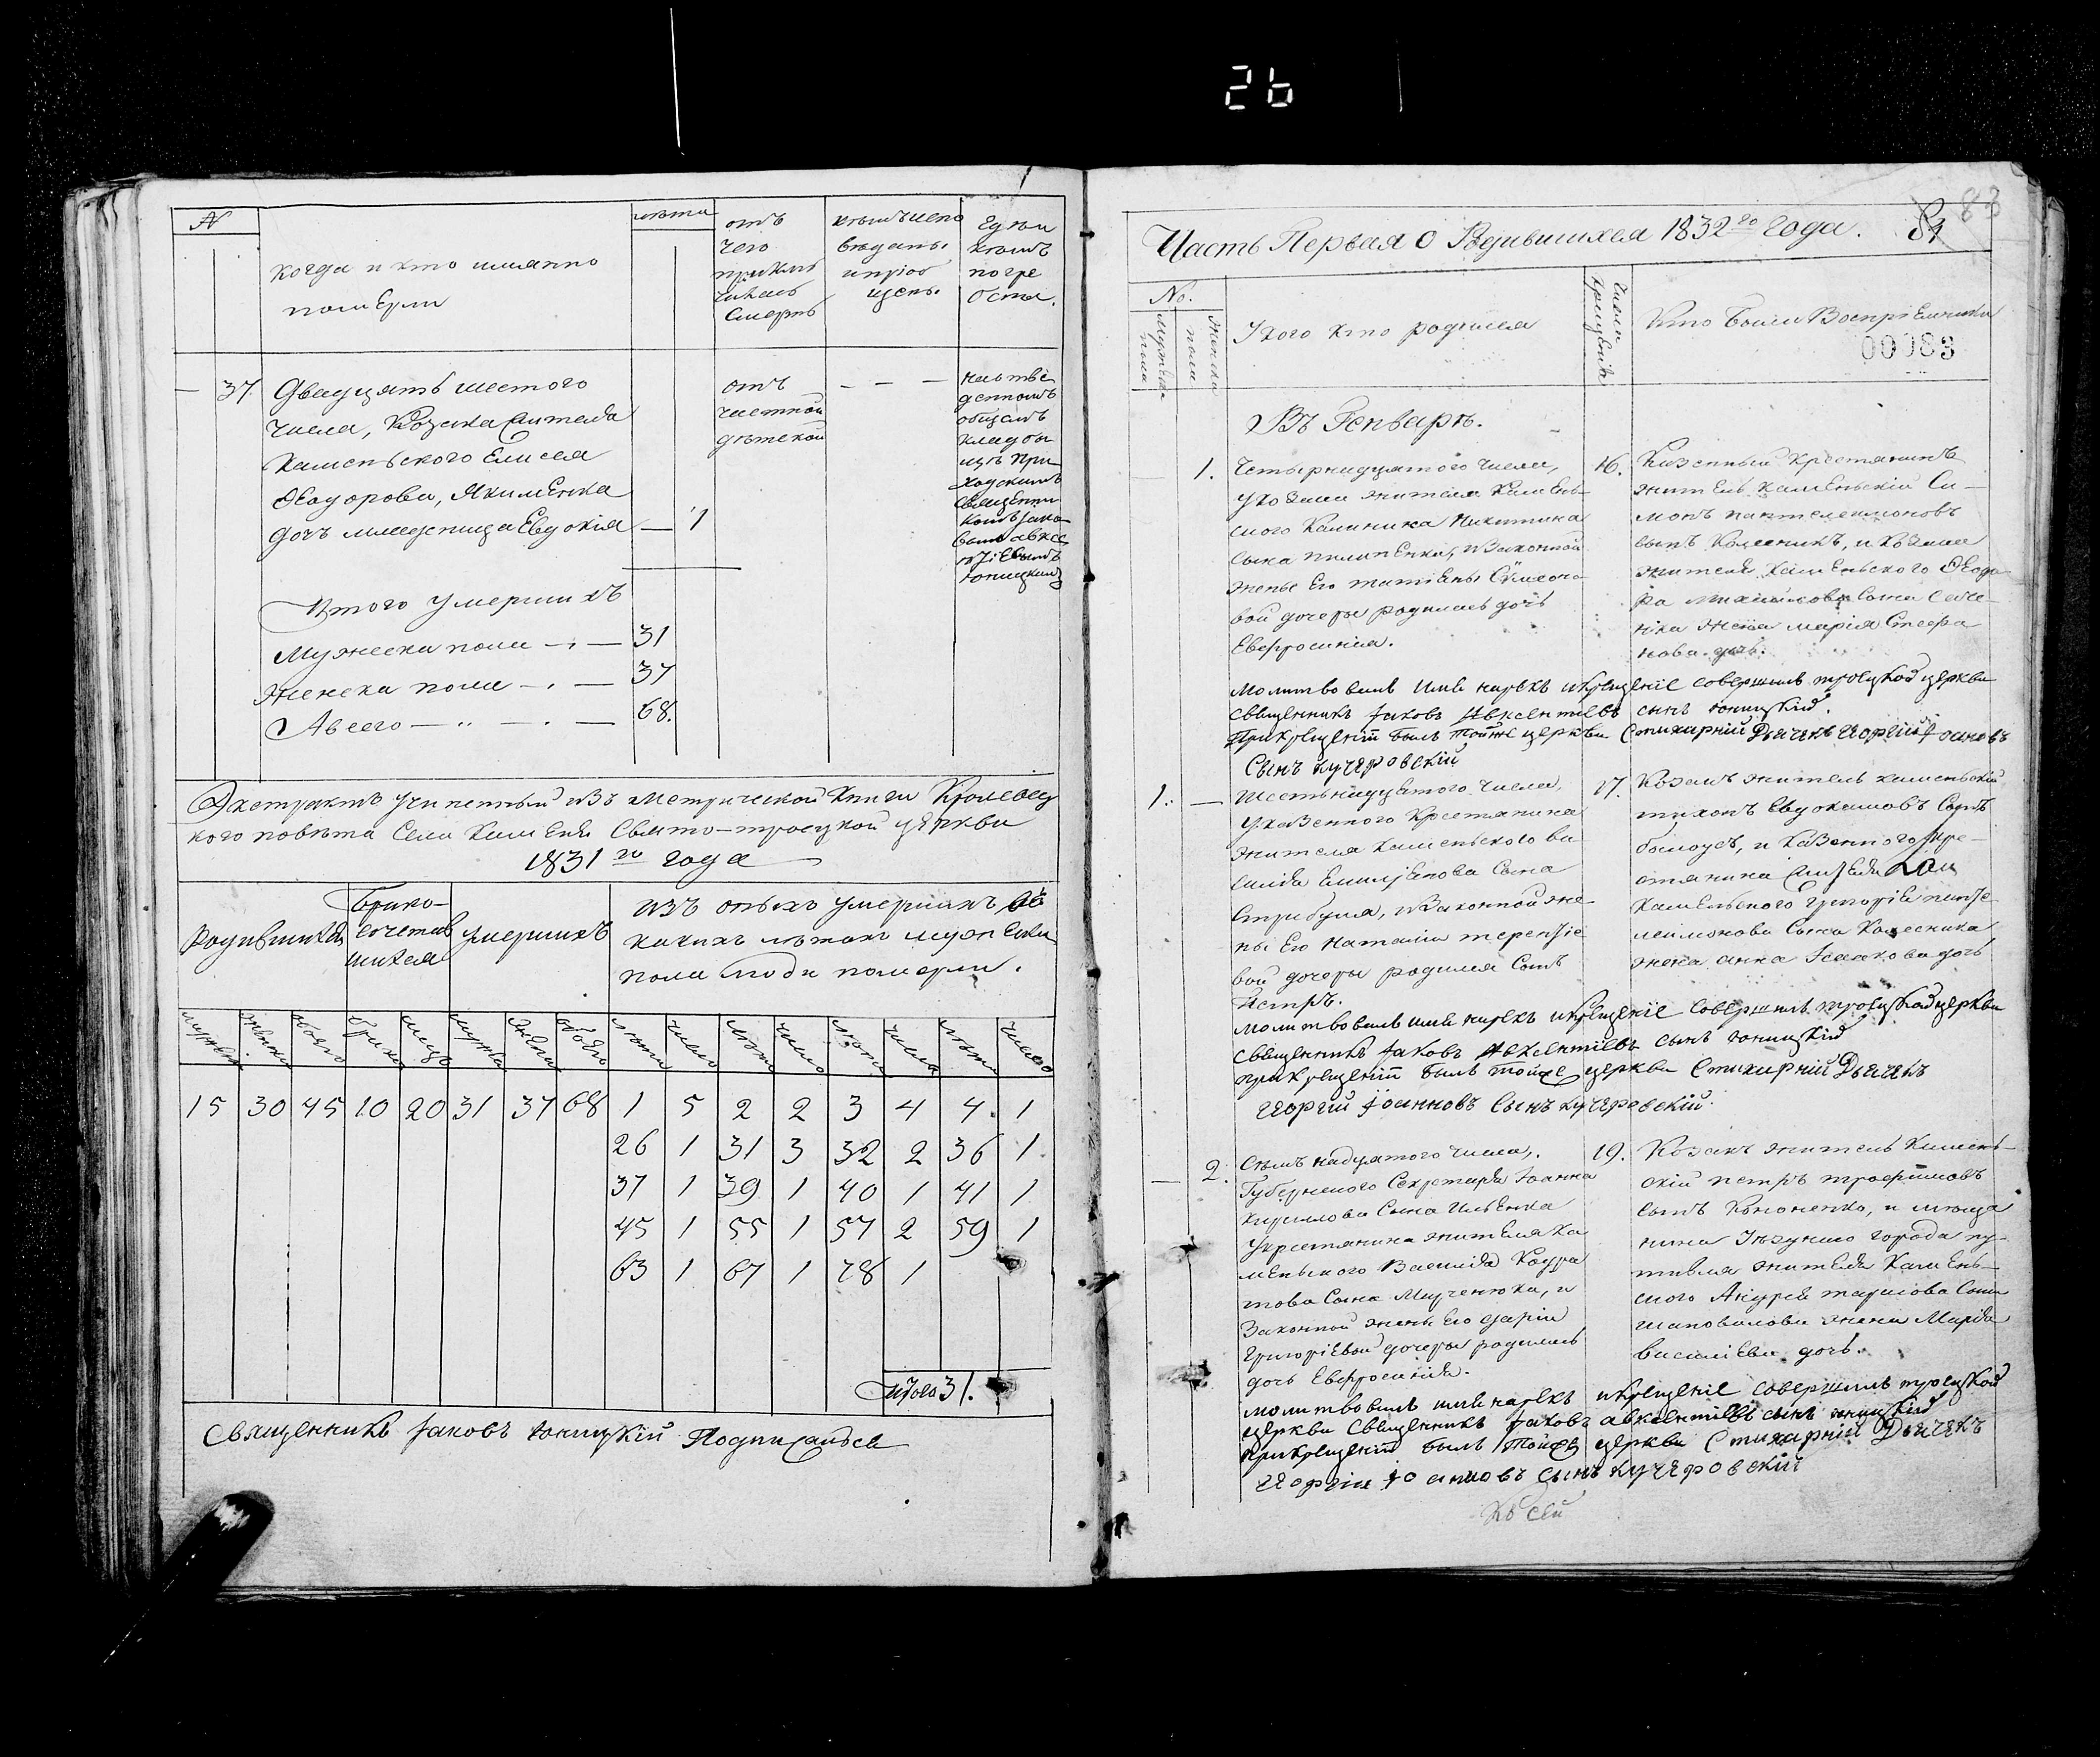 26
№
когда и кто имянно
померли
лѣта
отъ
чего
приклю
чилась
смерть
кѣмъ испо
вѣданы
и пріоб
щены
Где и
кѣмъ
погре
бены.
37
Двадцять шестого
числа, Козака жителя
Каменьского Елисея
Ѳеодорова, Якименка
дочъ младеница Евдокія — 1
отъ
дѣтской
— — —
общемъ
кладби
щѣ при
ходскимъ
священни
комъ Іако
вомъ Авксе
нтіевымъ
Юницкимъ
Итого умершихъ
Мужеска пола — 31
Женска пола — 37
А всего — 68.
Экстрактъ учиненный изъ метрической книги Кролевец
кого повѣта села Каменя Свято-троецкой церкви
1831го года
Родившихся
Брако-
сочетав
шихся
умершихъ
изъ оныхъ умершихъ въ
какихъ лѣтахъ мужеска
пола люди померли.
мужеск женска обоего браки лица мужска женска обоего лѣта число лѣта число лѣта число лѣта число
15 30 45 10 20 31 37 68 1 5 2 2 3 4 4 1
26 1 31 3 32 2 36 1
37 1 39 1 40 1 41 1
45 1 55 1 57 2 59 1
63 1 67 1 78 1
Итого 31.
Священникъ Іаковъ Юницкій Подписался
83
Часть Первая о Родившихся 1832го Года. 81
No.
Мужеска
пола
Женска
пола
У кого кто родился
Число
крещенія
Кто были Воспріемники
00083
Въ Генварѣ.
1.
Четырнадцятого числа,
у козака жителя Камень-
ского Калиника Никитина
сына Пилипенка, и законной
жены его Татіяны Симеоно
вой дочеры родилась дочь
Евфросинія.
16.
Казенный крестянинъ
житель Каменьскій Си-
монъ Пантелеимоновъ
сынъ Колесникъ, и козака
жителя Каменьского Ѳеодо
ра Михайлова сына
жена Марія Стефа
нова дочь.
молитвовалъ имя нарекъ и крещеніе совершилъ троецкой церкви
священникъ Іаковъ Авксентіевъ сынъ Юницкій.
При крещеніи былъ тойже церкви Стихарный Дьячекъ Георгій Іоанновъ
Сынъ Кучеровскій
1.
Шестьнадцятого числа,
у казенного крестянина
жителя Каменьского Ва
силія Емиліянова сына
Стрибуля, и законной же-
ны его Наталіи Терентіе
вой дочеры родился сынъ
Петръ.
17.
Козакъ житель Каменьскій
Тихонъ Евдокимовъ сынъ
Боло, и казенного кре-
стянина жителя
Каменьского Григорія Панте
леимонова сына Колесника
жена Анна Исаакова дочь
молитвовалъ имя нарекъ и крещеніе совершилъ троецкой церкви
священникъ Іаковъ Авксентіевъ сынъ Юницкій
при крещеніи былъ тойже церкви Стихарный Дьячекъ
Георгій Іоанновъ Сынъ Кучеровскій.
2.
Семьнадцятого числа,
Губернского Секретаря Іоанна
Кирилова сына Ильенка
у крестянина жителя Ка
меньского Василія Кодра
това сына Марченка, и
законной жены его Дарии
Григоріевой дочеры родилась
дочь Евфросинія.
19.
Козакъ житель Камень-
скій Петръ Трофимовъ
сынъ Кононенко, и мѣща
нина города Пу-
тивля жителя Камень-
ского Андрея Тарасова сына
Шаповалова жена Марія
Василіева дочь.
молитвовалъ имя нарекъ и крещеніе совершилъ троецкой
церкви Священникъ Іаковъ Авксентіевъ сынъ Юницкій
при крещеніи былъ тойже церкви Стихарный Дьячекъ
Георгій Іоанновъ Сынъ Кучеровскій
Къ сей